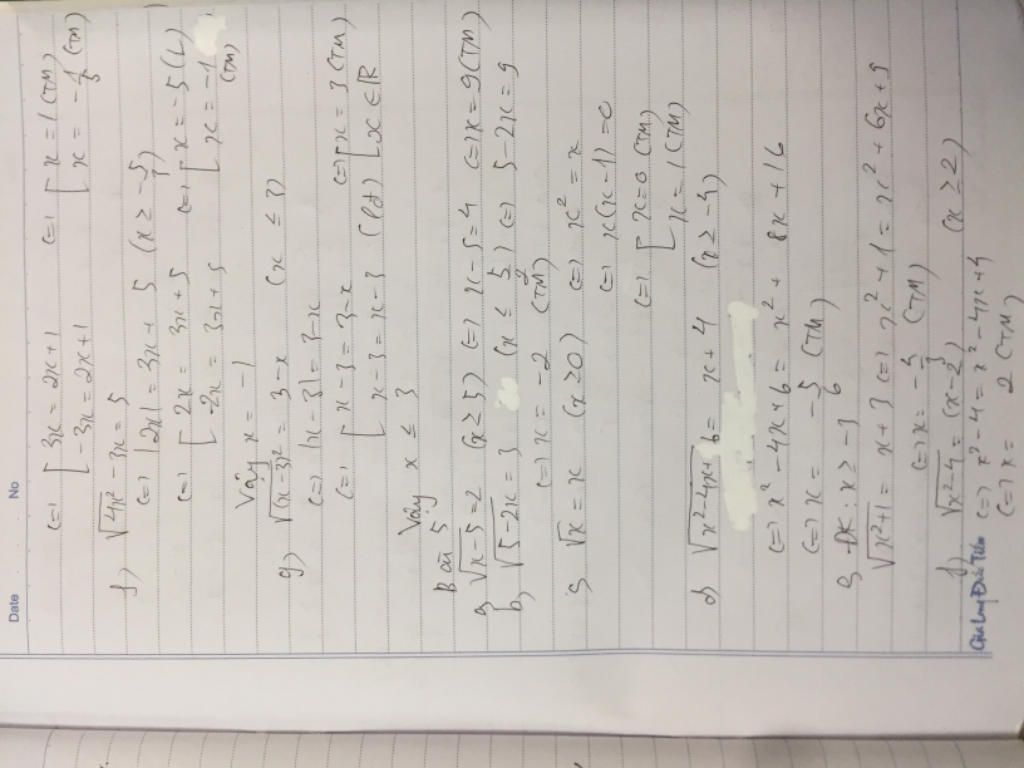 Date No
<=> [ 3x = 2x+1 <=> [ x = 1 (TM)
-3x = 2x+1 x = -1/5 (TM)
f) √4x² - 3x = 5
<=> |2x| = 3x + 5 (x ≥ -5/3)
<=> [ 2x = 3x + 5 <=> [ x = -5 (L)
-2x = 3x + 5 x = -1 (TM)
Vậy x = -1
g) √(x-3)² = 3-x (x ≤ 3)
<=> |x-3| = 3-x
<=> [ x-3 = 3-x <=> [ x = 3 (TM)
x-3 = x-3 (lđ) x ∈ R
Vậy x ≤ 3
Bài 5
a) √x-5 = 2 (x ≥ 5) <=> x-5 = 4 <=> x = 9 (TM)
b, √5-2x = 3 (x ≤ 5/2) <=> 5-2x = 9
<=> x = -2 (TM)
c, √x = x (x ≥ 0) <=> x² = x
<=> x(x-1) = 0
<=> [ x = 0 (TM)
x = 1 (TM)
d) √x²-4x+6 = x+4 (x ≥ -4)
<=> x²-4x+6 = x² + 8x + 16
<=> x = -5/6 (TM)
e, ĐK: x ≥ -3
√x²+1 = x+3 <=> x²+1 = x² + 6x + 9
<=> x = -4/3 (TM)
f) √x²-4 = (x-2) (x ≥ 2)
<=> x²-4 = x²-4x+4
<=> x = 2 (TM)